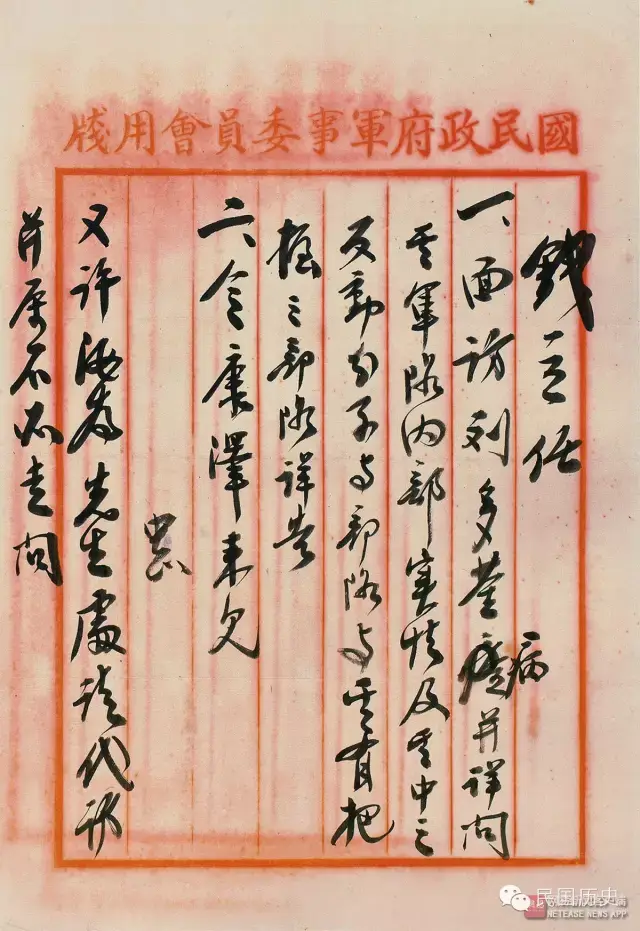 國民政府軍事委員會用牋
錢主任
一、面訪刘多荃病并詳問
其軍隊內部實情及其中之
反動分子与部隊与其有把
握之部隊詳告
二、令康澤來見
中正
又許汝為先生處請代訪
并不走問
民国历史
NETEASE NEWS APP